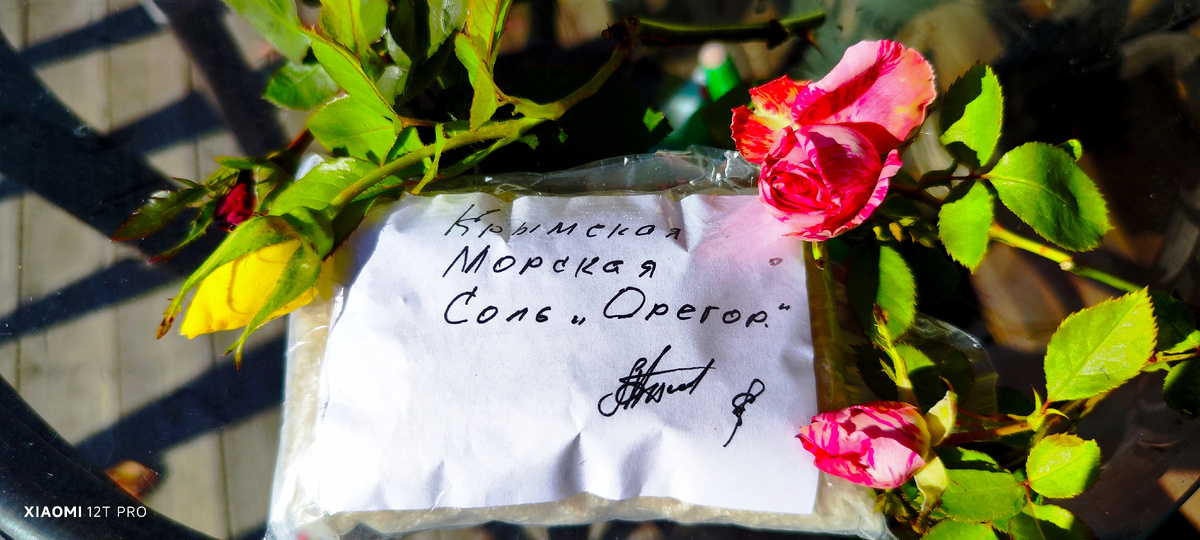 Крымская
Морская
Соль „Орегор."
XIAOMI 12T PRO